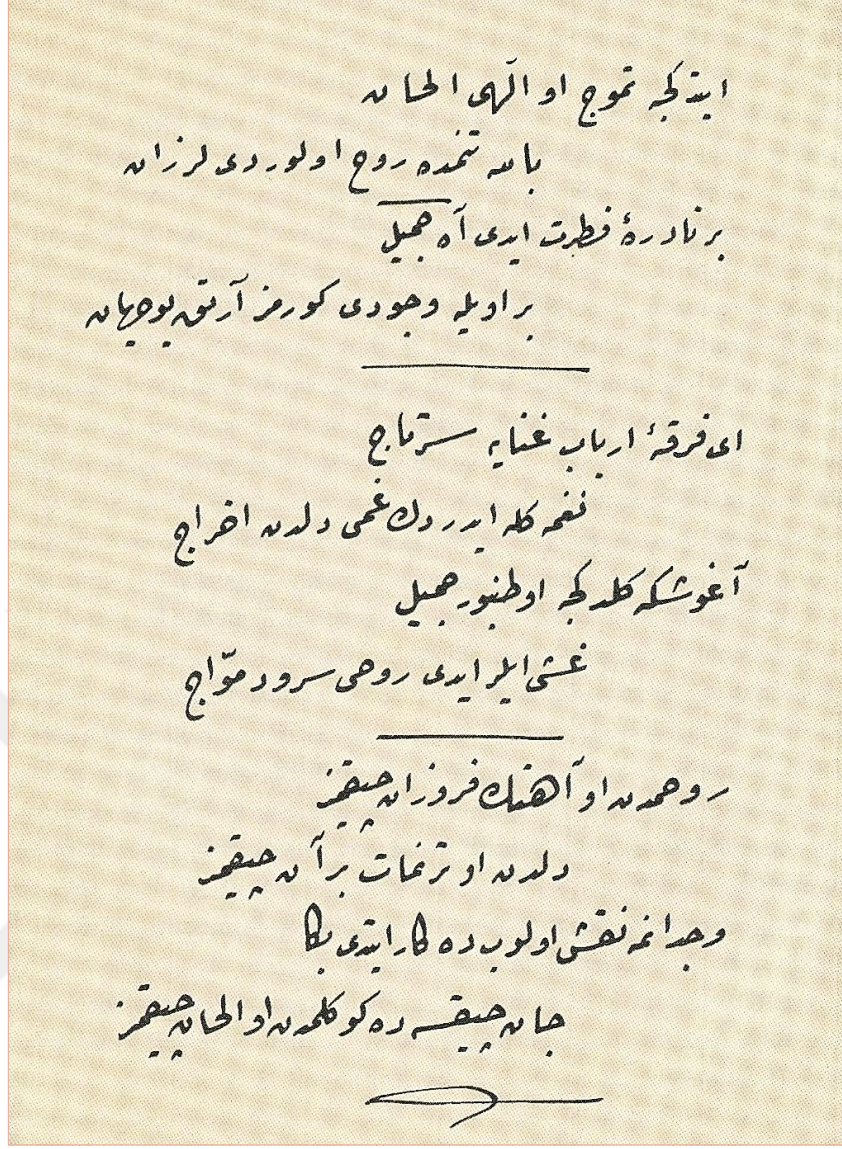 ایتدكجه تموج او الٓهی الحان
بالله تنمده روح اولوردی لرزان
بر نادرهٔ فطرت ایدی آه جمیل
بر اویله وجودی كورمز آرتق بو جهان
ای فرقهٔ ارباب غنایه سرتاج
نغمه كله ایدردك غمی دلدن اخراج
آغوشكه كلدكجه او طنبور جمیل
غشی ایلر ایدی روحی سرود موّاج
روحمدن او آهنك فروزان چیقمز
دلدن او ترنمات بر آن چیقمز
وجدانمه نقش اولوب ده كار ایتدی بكا
جان چیقسه ده كوكلمدن او الحان چیقمز